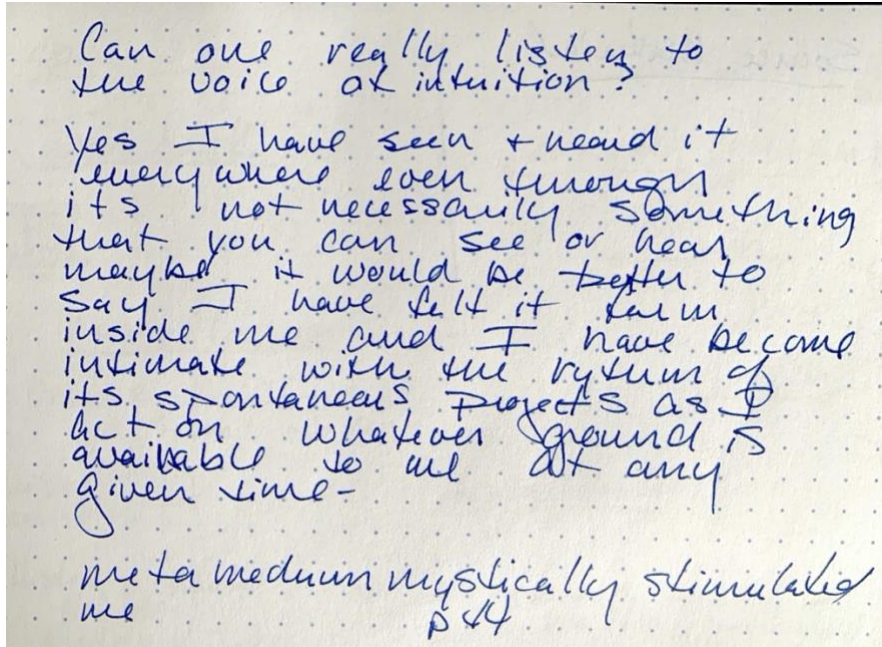 Can one really listen to
the voice of intuition?
Yes I have seen + heard it
everywhere even through
its not necessarily something
that you can see or hear
maybe it would be better to
say I have felt it form
inside me and I have become
intimate with the rytum of
its spontaneous projects as I
act on whatever ground is
available to me at any
given time-
metamedium mystically stimulated
me